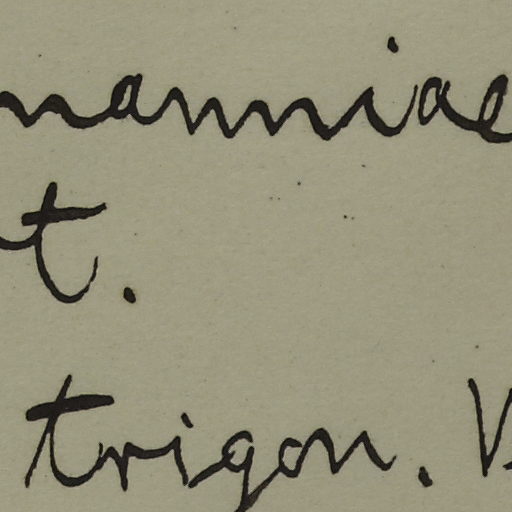 manniae
t.
trigon. V